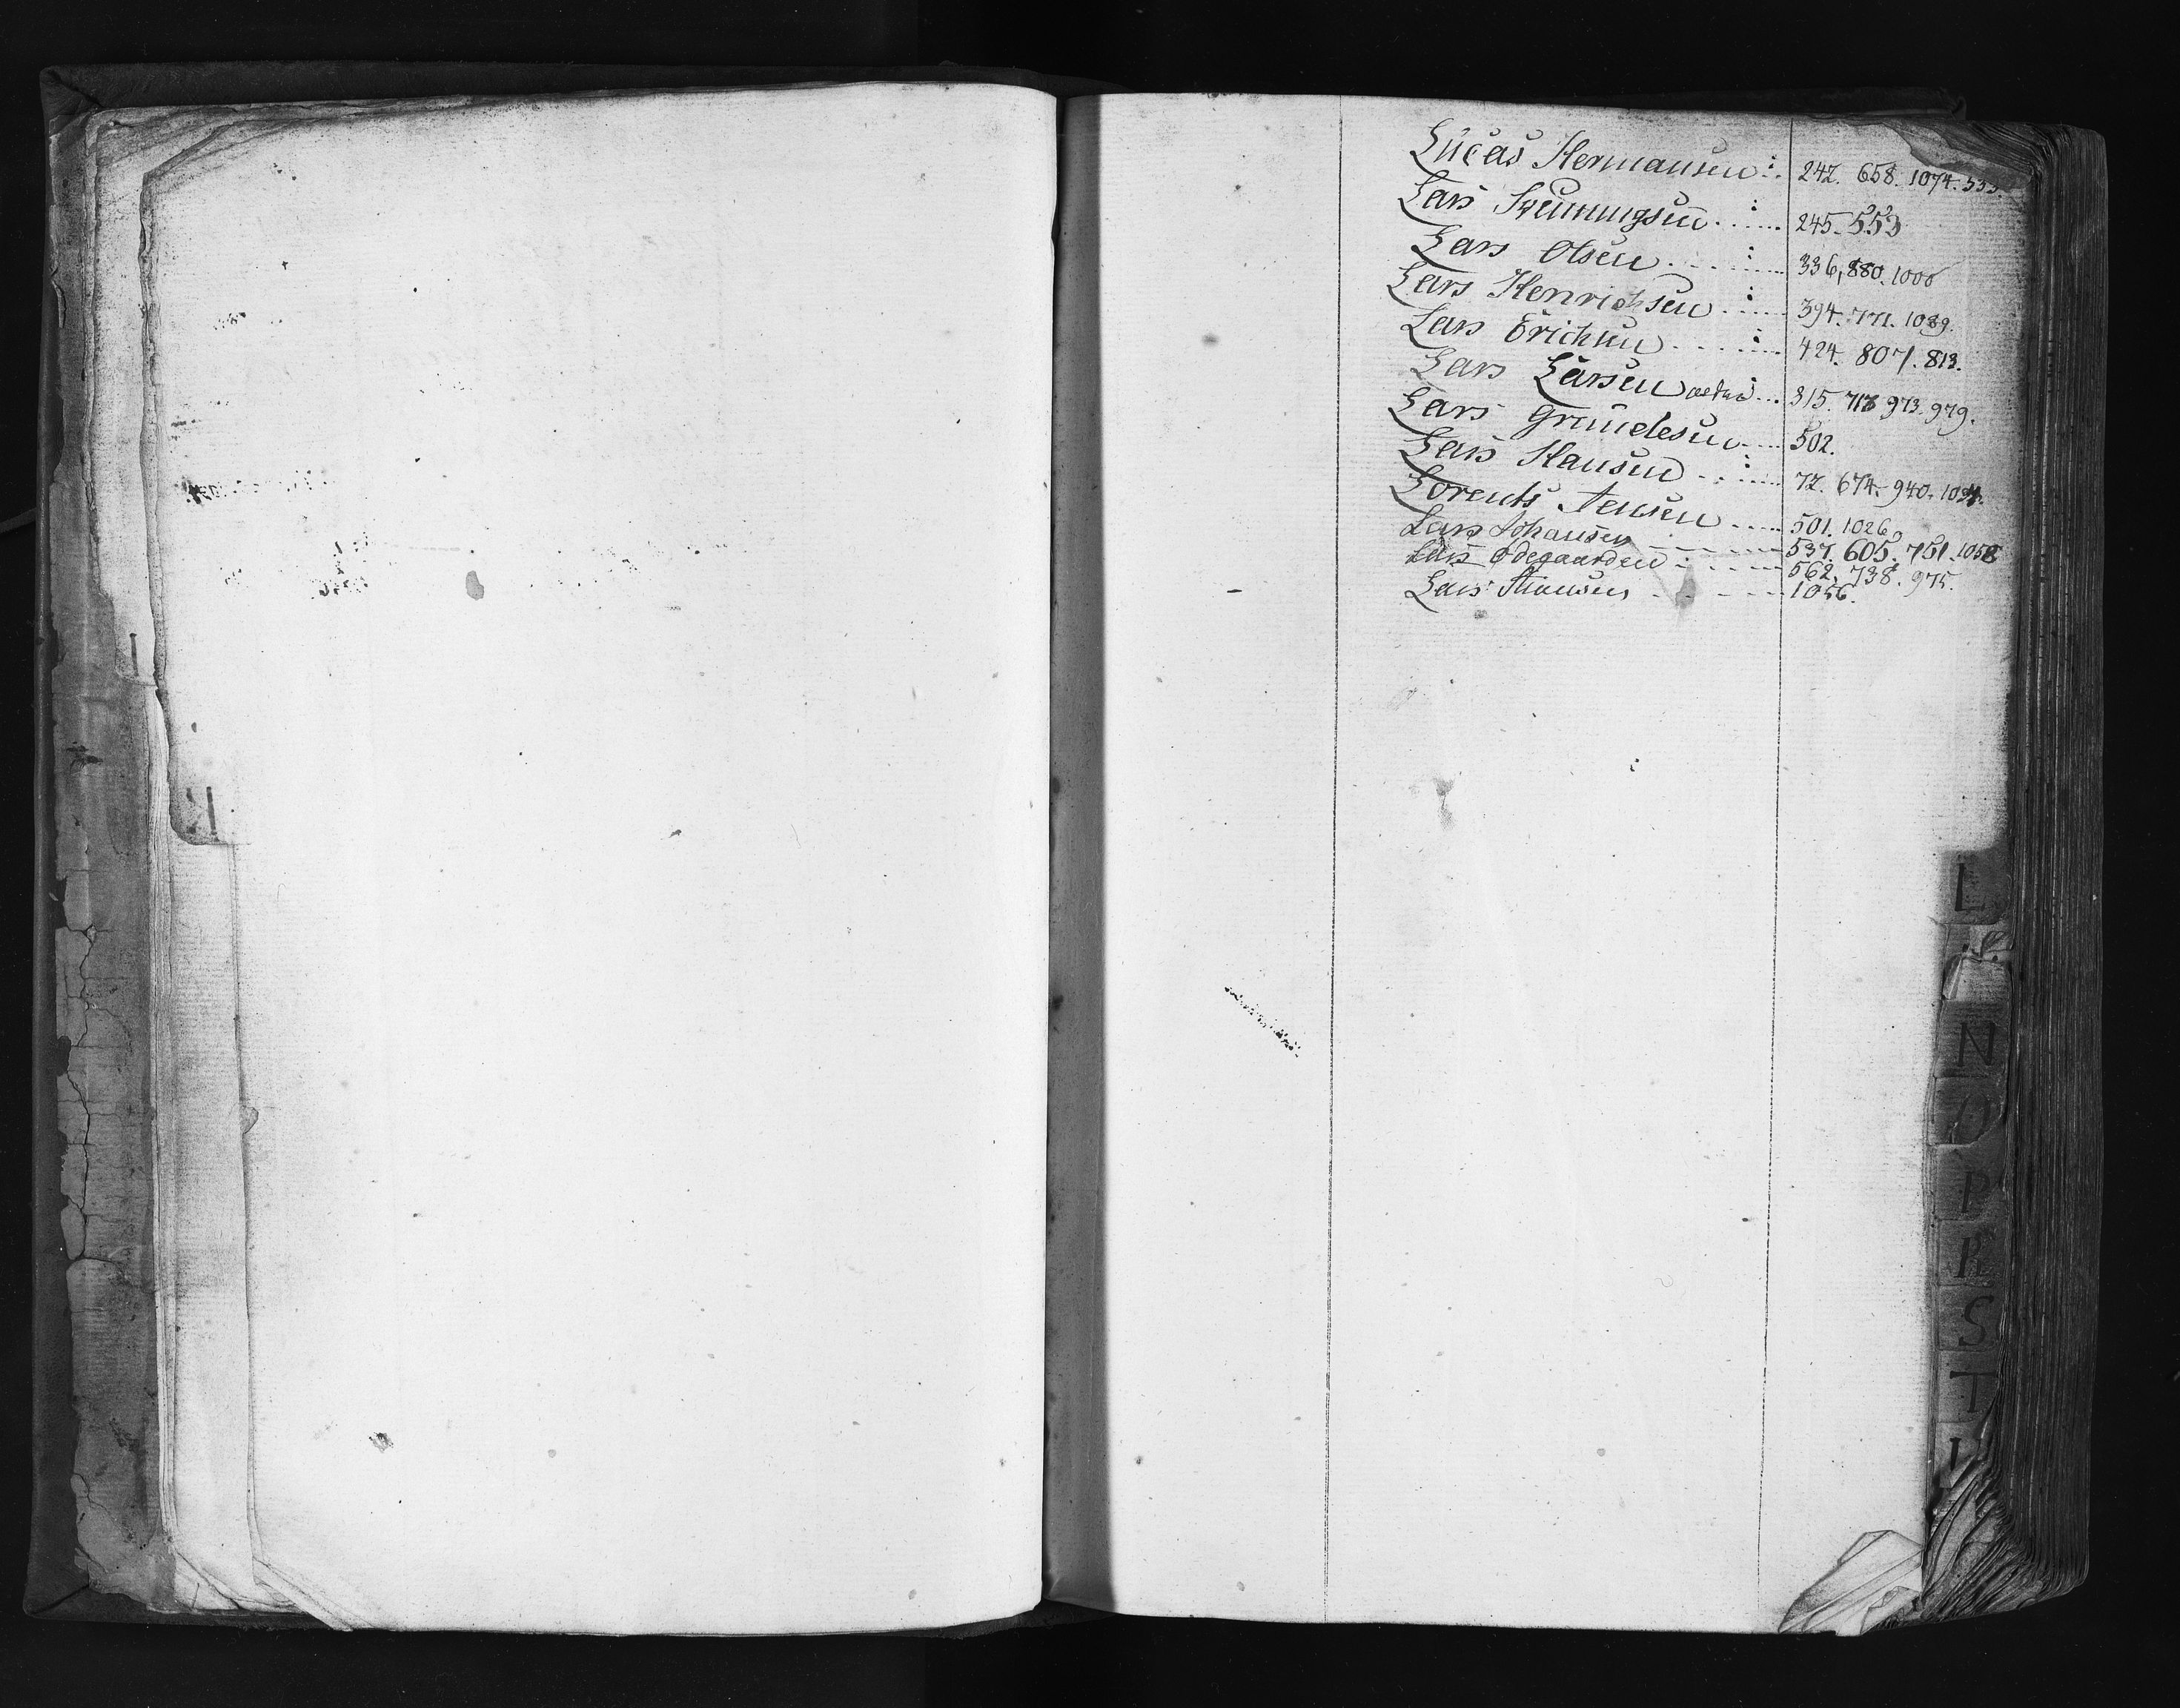 Lucas Hermansen 242. 658. 1074.
Lars Svenningsen 245. 553
Lars Olsen 336, 880. 1000
Lars Henrichsen 394. 771. 1089.
Lars Erichsen 424. 807. 813.
Lars Larsen 315. 718 973. 979.
Lars Grundesen 502.
Lars Hansen 72. 674. 940.
Lorents Jensen 501. 1026
Lars Johansen 537. 605. 751. 1058
Lars Ødegaarden 562, 738. 975.
Lars 1056.
I
K
L
N
O
P
R
S
T